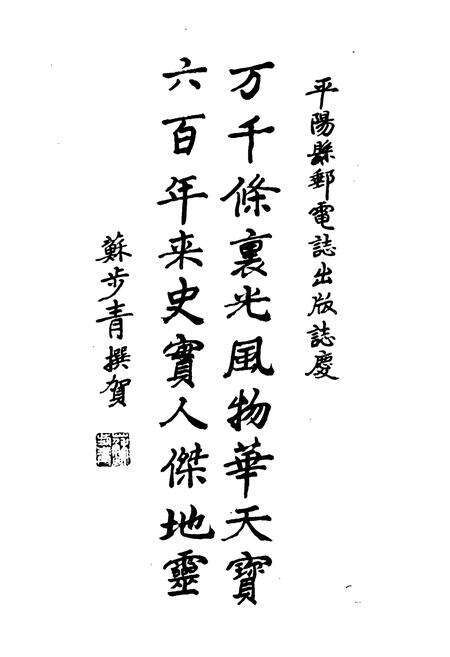 平陽縣郵電誌出版誌慶
万千條裏光風物華天寶
六百年来史實人傑地靈
蘇步青撰賀